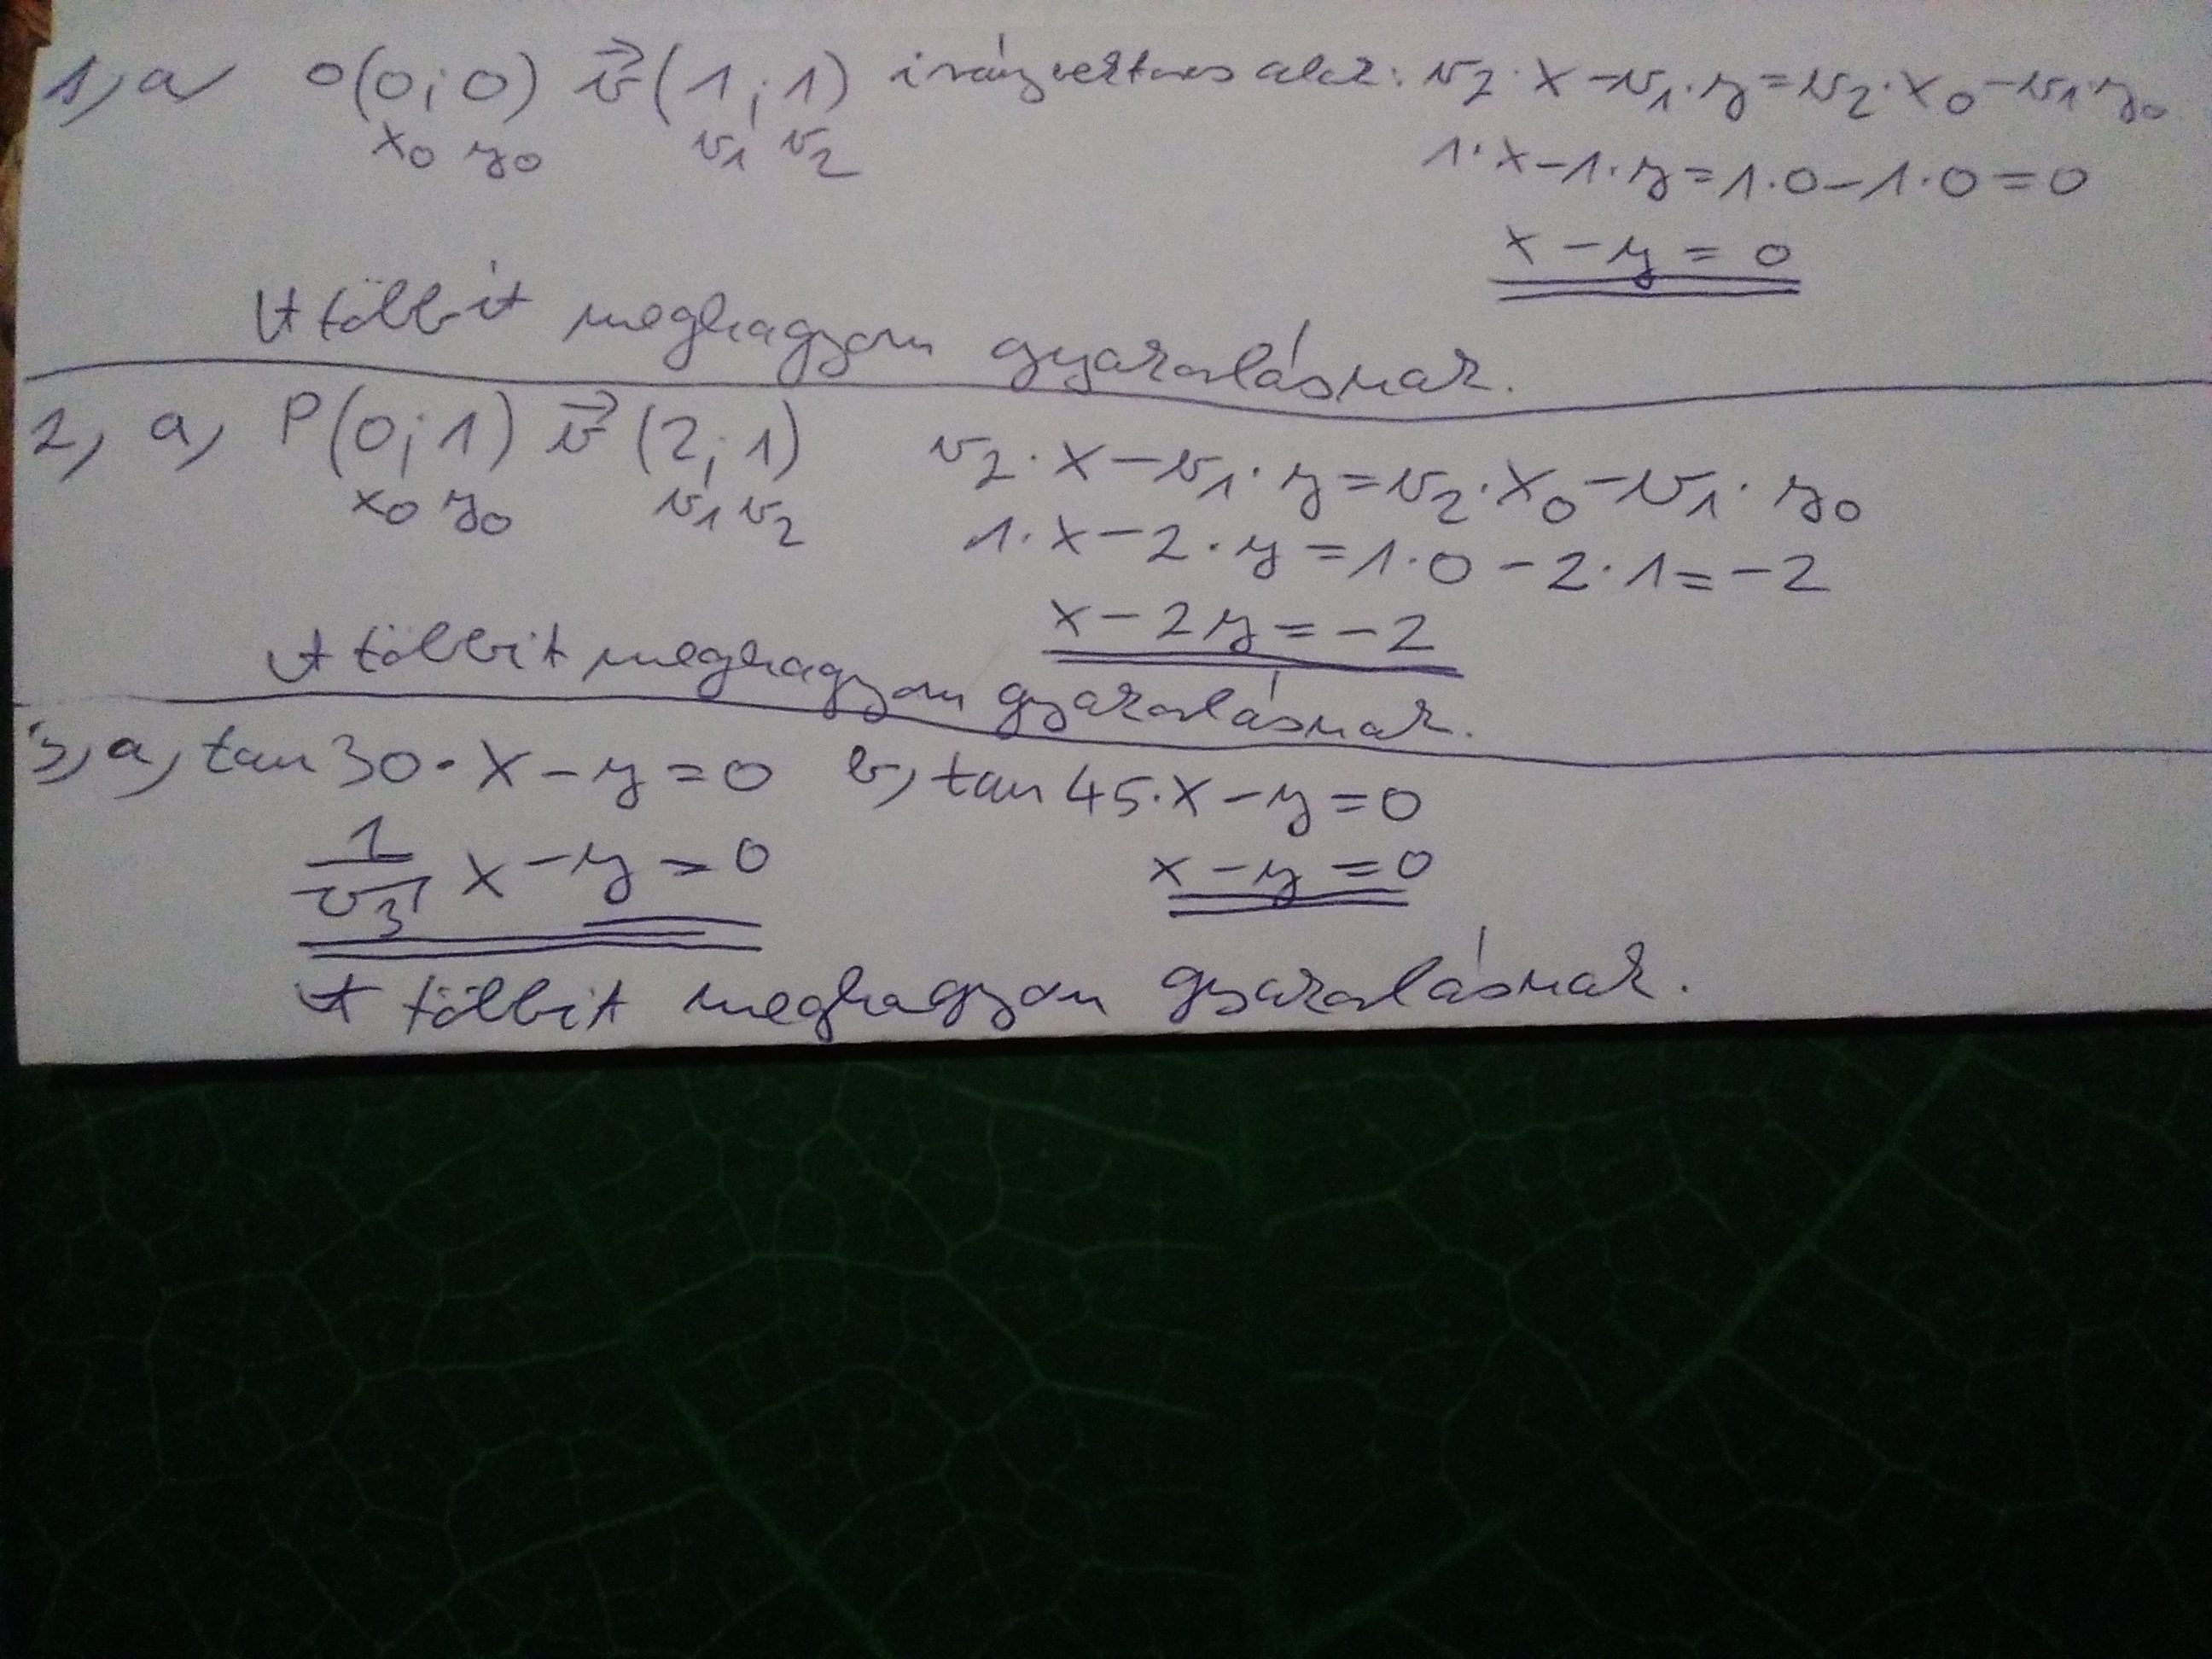 1, a, O(0;0) v⃗(1;1) irányvektoros alak: v₂·x-v₁·y=v₂·x₀-v₁·y₀
x₀ y₀ v₁ v₂
1·x-1·y=1·0-1·0=0
x-y=0
A többit meghagyom gyakorlásnak.
2, a, P(0;1) v⃗(2;1) v₂·x-v₁·y=v₂·x₀-v₁·y₀
x₀ y₀ v₁ v₂
1·x-2·y=1·0-2·1=-2
x-2y=-2
A többit meghagyom gyakorlásnak.
3, a, tan30·x-y=0 b, tan45·x-y=0
1/√3 x-y=0 x-y=0
A többit meghagyom gyakorlásnak.